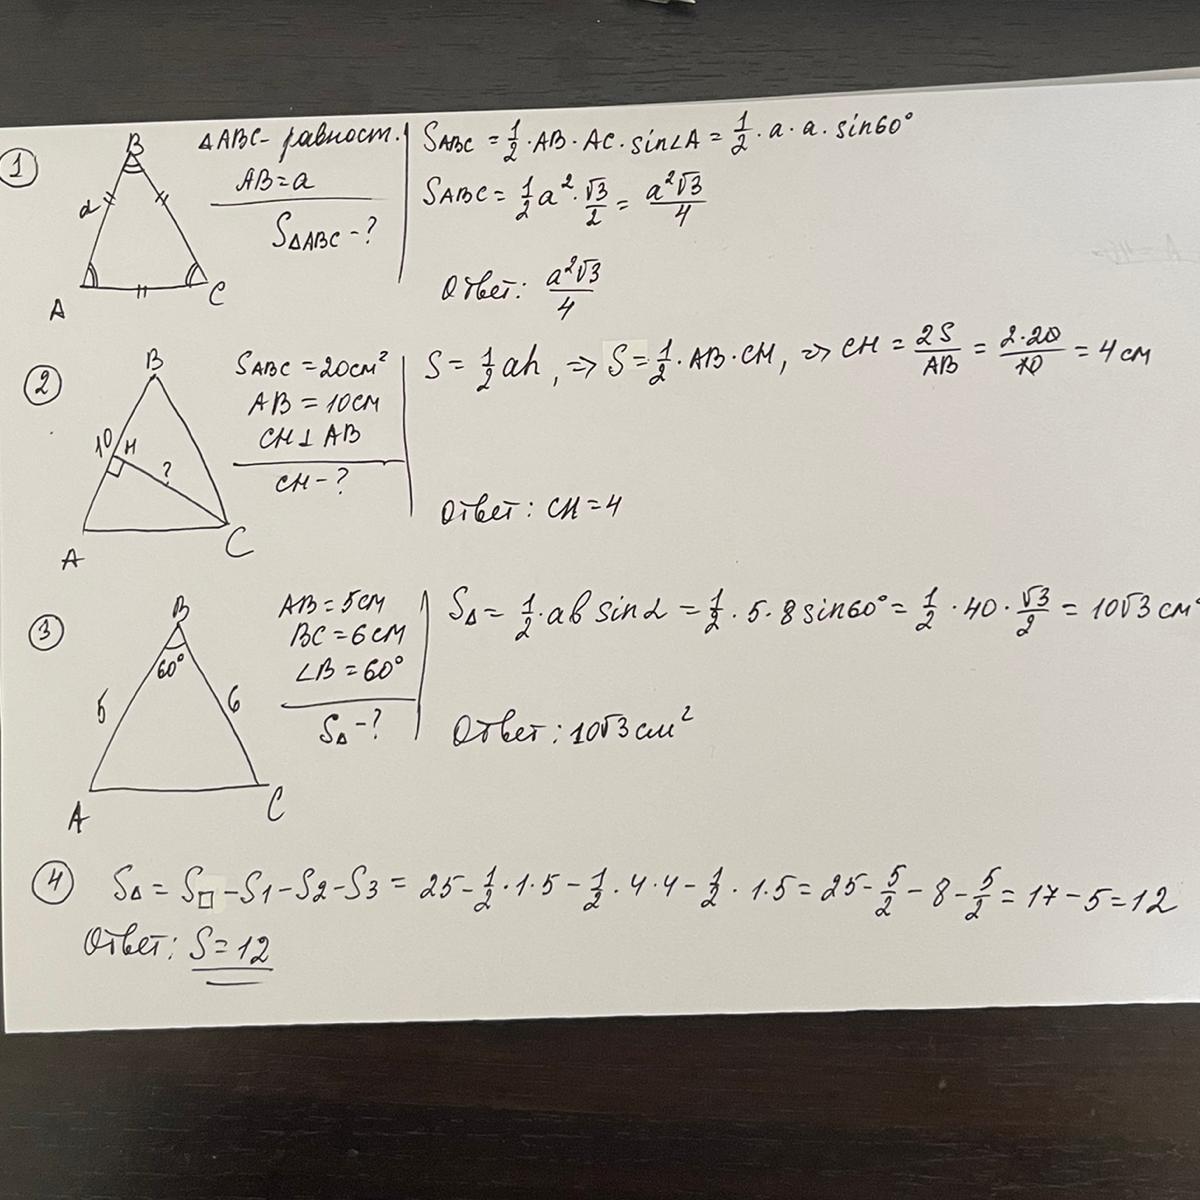 1
B
a
A
C
△ABC - равност.
AB=a
S△ABC - ?
SABC = 1/2 · AB · AC · sin∠A = 1/2 · a · a · sin60°
SABC = 1/2 a² · √3/2 = a²√3/4
Ответ: a²√3/4
2
B
10
H
?
A
C
SABC = 20см²
AB = 10см
CH ⊥ AB
CH - ?
S = 1/2 ah, => S = 1/2 · AB · CH, => CH = 2S/AB = 2·20/10 = 4 см
Ответ: CH = 4
3
B
60°
5
6
A
C
AB = 5см
BC = 6см
∠B = 60°
S△ - ?
S△ = 1/2 · ab sinα = 1/2 · 5 · 8 sin60° = 1/2 · 40 · √3/2 = 10√3 см²
Ответ: 10√3 см²
4
S△ = S□ - S1 - S2 - S3 = 25 - 1/2 · 1 · 5 - 1/2 · 4 · 4 - 1/2 · 1 · 5 = 25 - 5/2 - 8 - 5/2 = 17 - 5 = 12
Ответ: S = 12